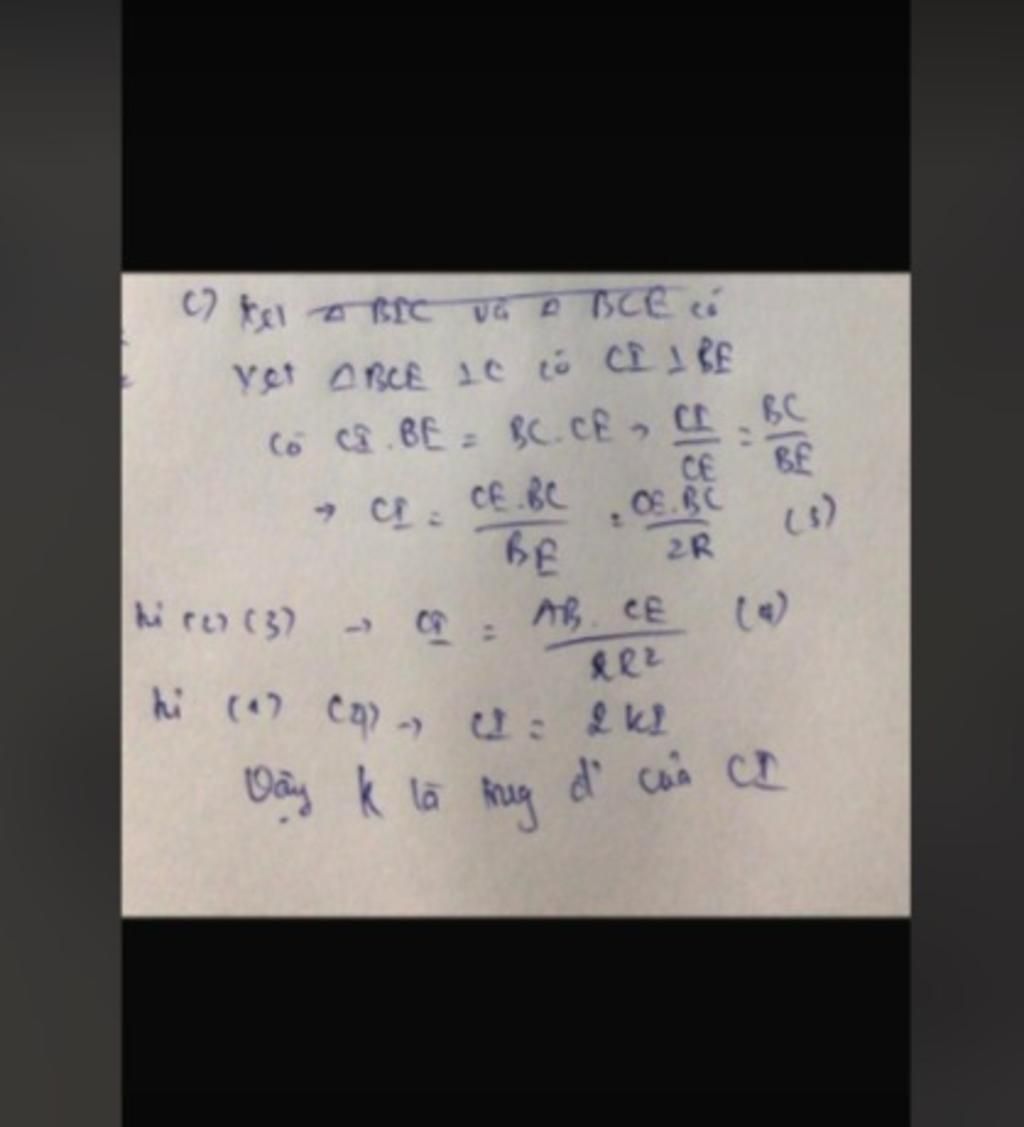 c) Xét Δ BIC và Δ BCE có
Xét ΔBCE ⊥ C có CI ⊥ BE
Có CI . BE = BC . CE → CI/CE = BC/BE
→ CI = CE . BC / BE = CE . BC / 2R (3)
từ (2) (3) → CI = AB . CE / 2R² (4)
từ (1) (4) → CI = 2 KI
Vậy K là trung đ' của CI